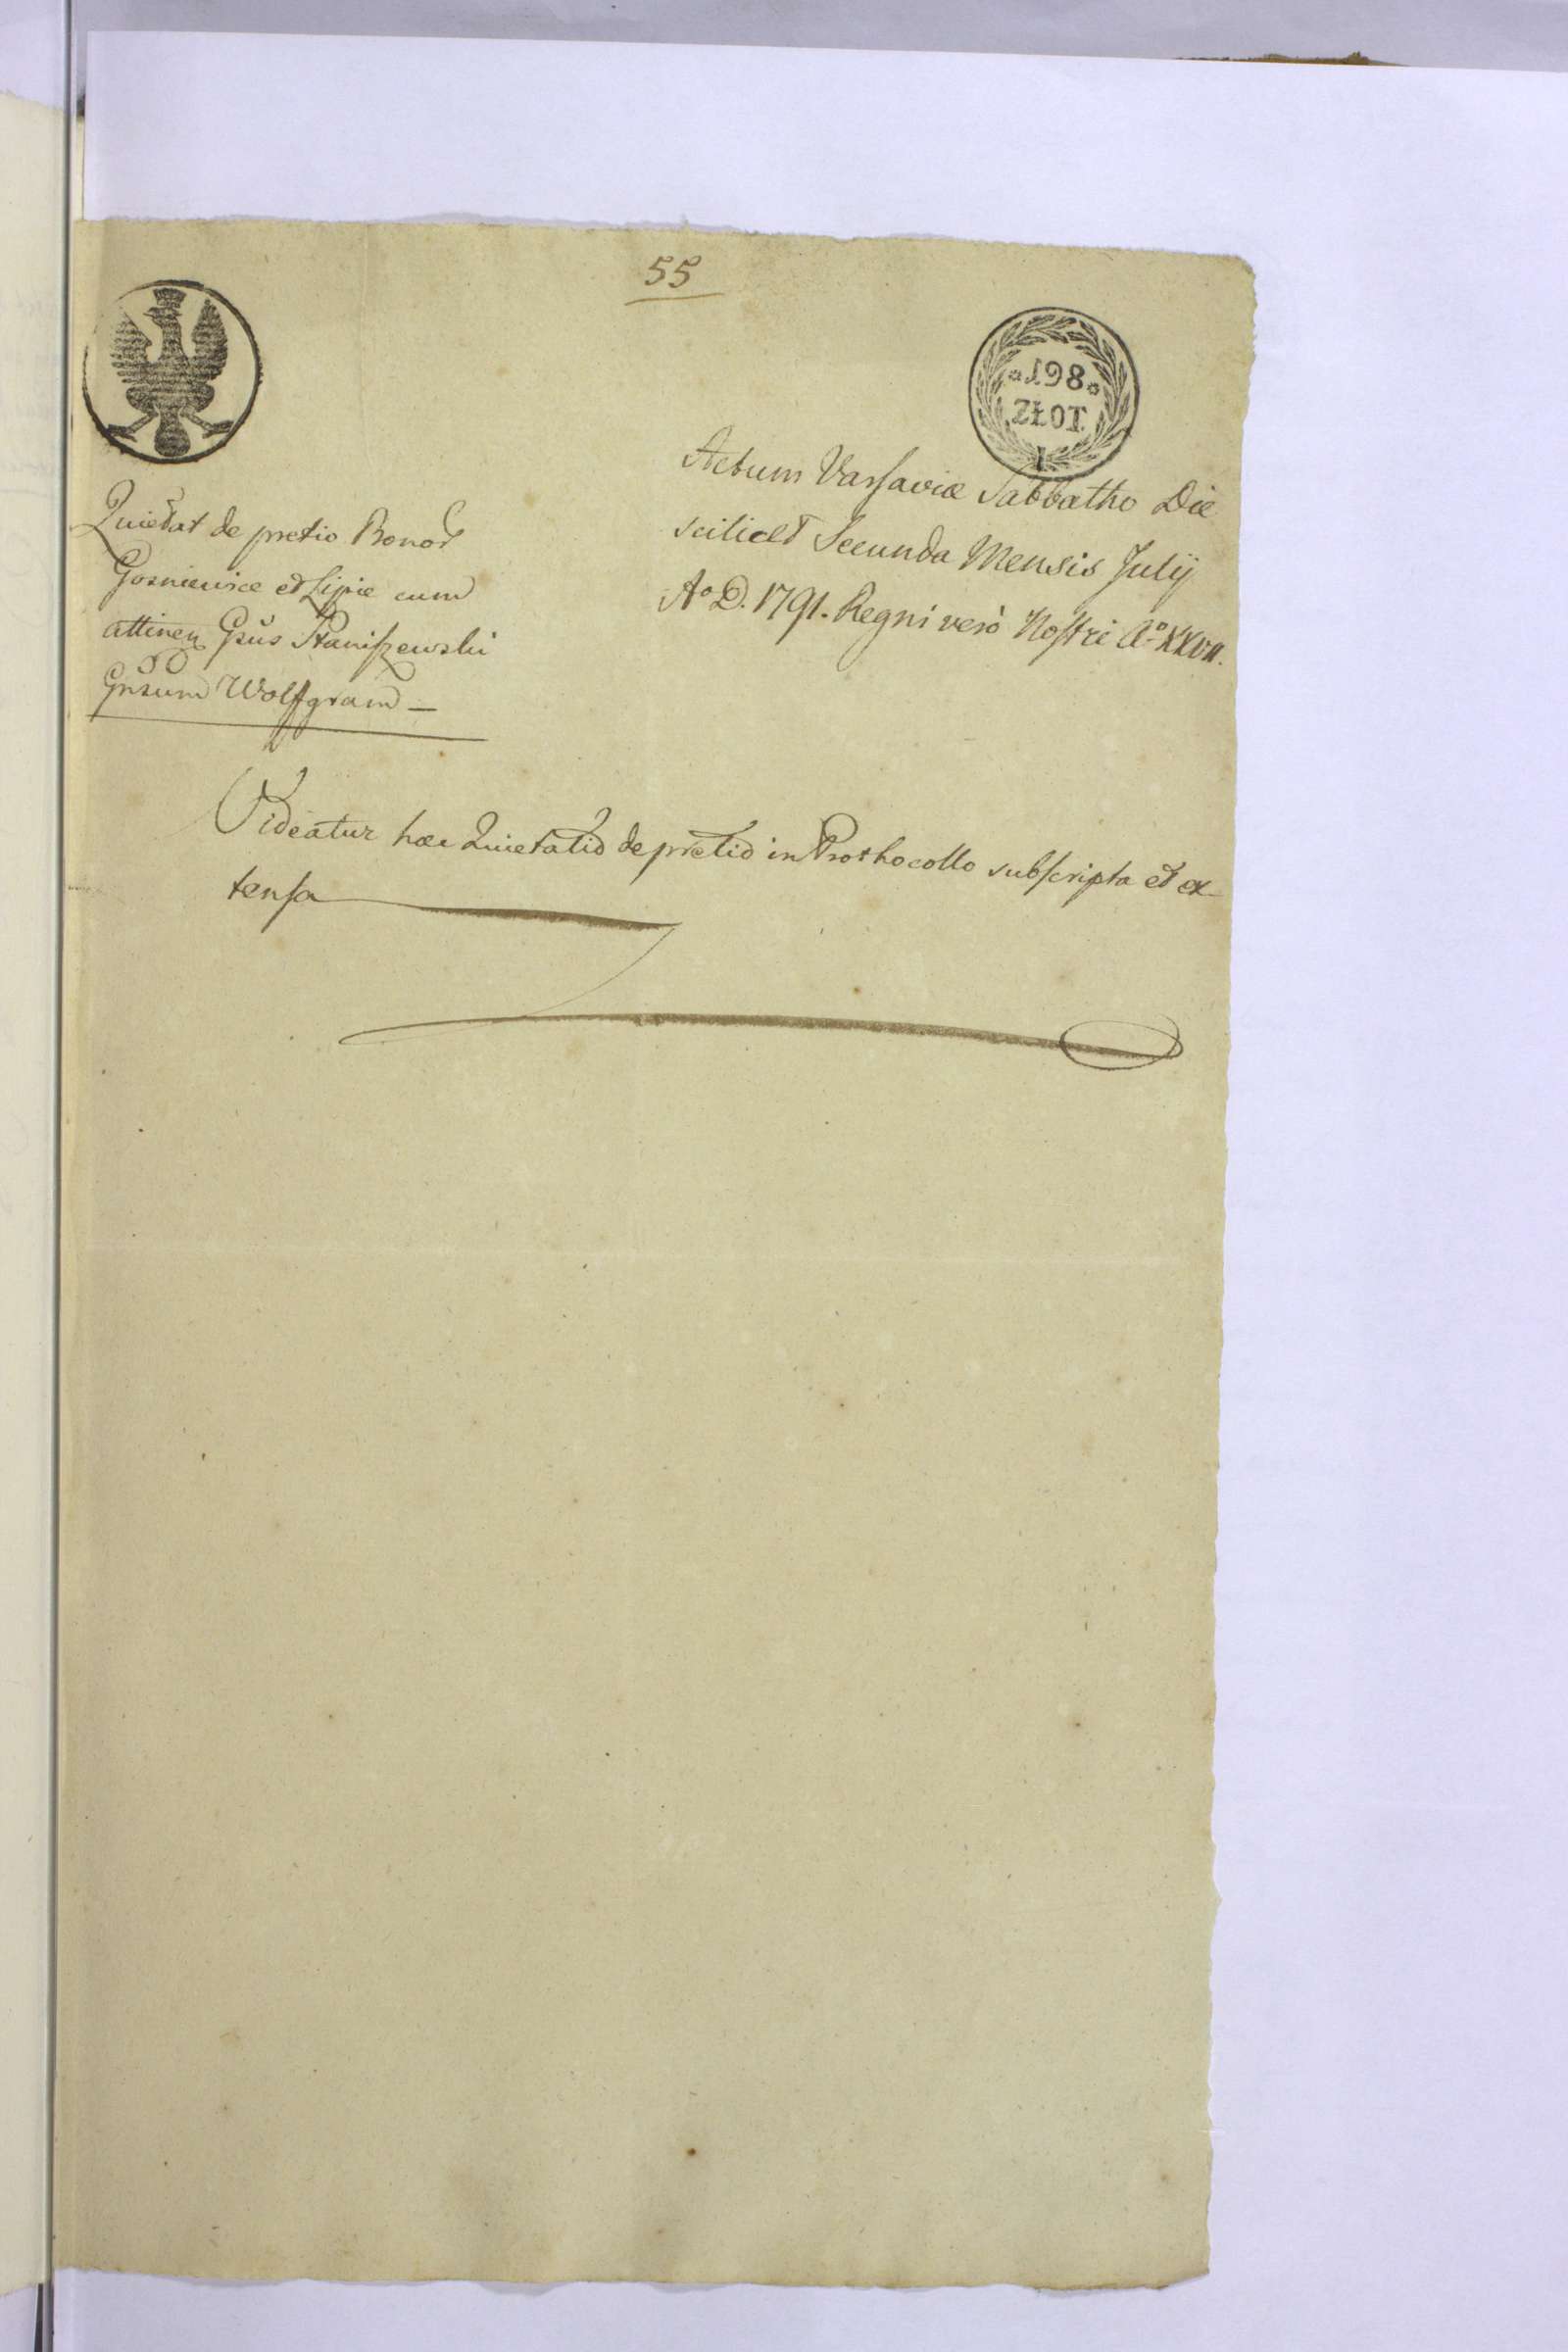 55
198
ZŁOT
Actum Varsaviæ Sabbatho Die
scilicet Secunda Mensis Julÿ
Aº D. 1791. Regni verò Nostri Aº XXVII.
Quietat de pretio Bonor
Gosniewice et Lipie cum
attinen Gsus Staniszewski
Gnsum Wolffgram —
Videatur hæc Quietatio de pretio in Prothocollo subscripta et ex-
tensa